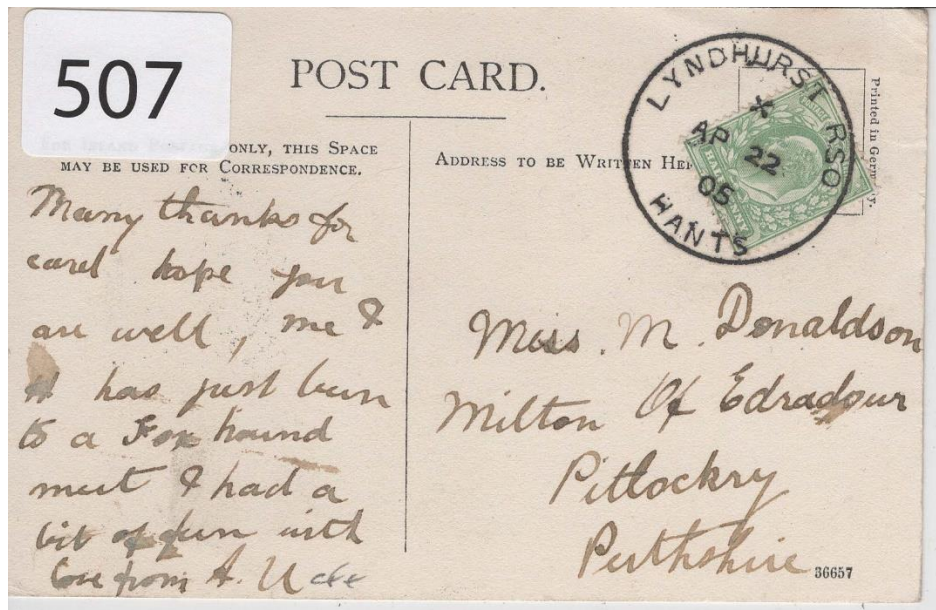 507
POST CARD.
ONLY, THIS SPACE
MAY BE USED FOR CORRESPONDENCE.
ADDRESS TO BE WRITTEN HE
Printed in Ger y.
LYNDHURST R.S.O.
AP 22
05
HANTS
Many thanks for
card hope you
are well, me &
A has just been
to a Fox hound
meet & had a
bit of fun with
love from A. U
Miss. M. Donaldson
Milton Of Edradour
Pitlockry
Perthshire
36657